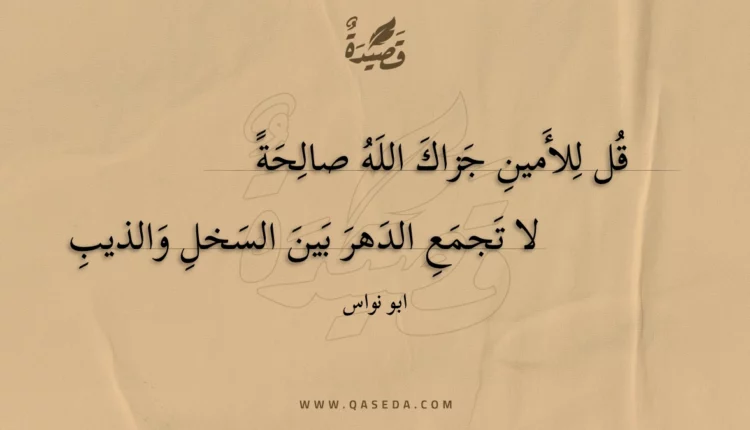 قَصِيدَةٌ
قُل لِلأَمينِ جَزاكَ اللَهُ صالِحَةً
لا تَجمَعِ الدَهرَ بَينَ السَخلِ وَالذيبِ
ابو نواس
WWW.QASEDA.COM